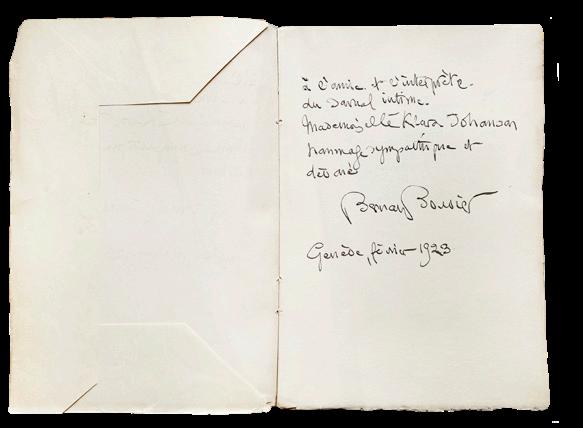 à l'amie et l'interprète
du Journal intime.
Mademoiselle Klara Johanson
hommage sympathique et
dévoué
Bernard Bouvier
Genève, février 1923